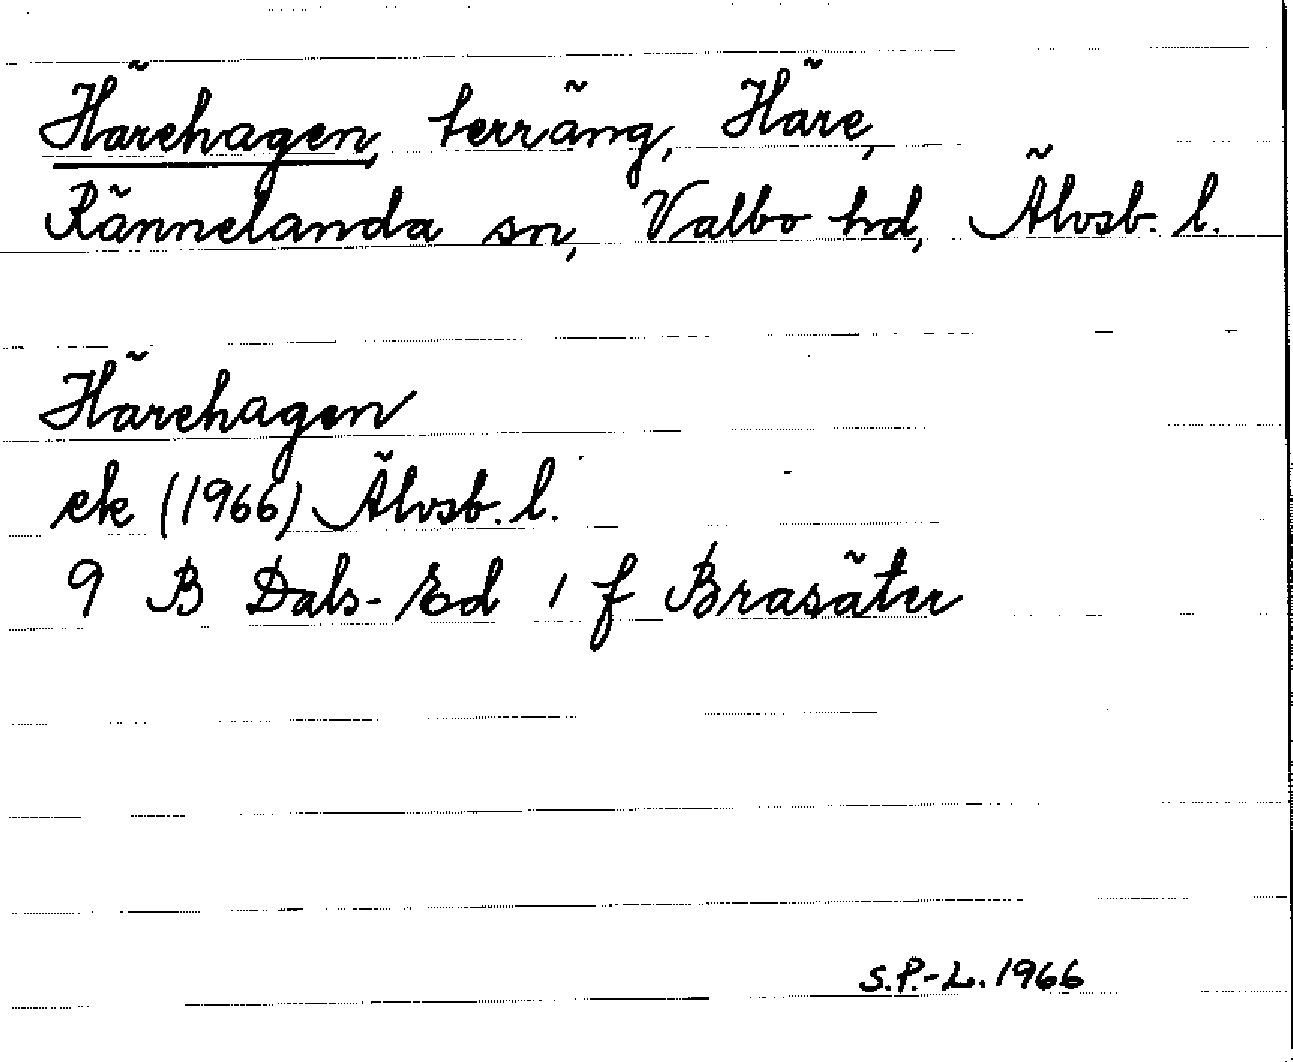 Härehagen, terräng, Häre,
Rännelanda sn, Valbo hd, Älvsb. l.
Härehagen
ek (1966) Älvsb. l.
9 B Dals-Ed 1 f Brasäter
S.P.-L. 1966